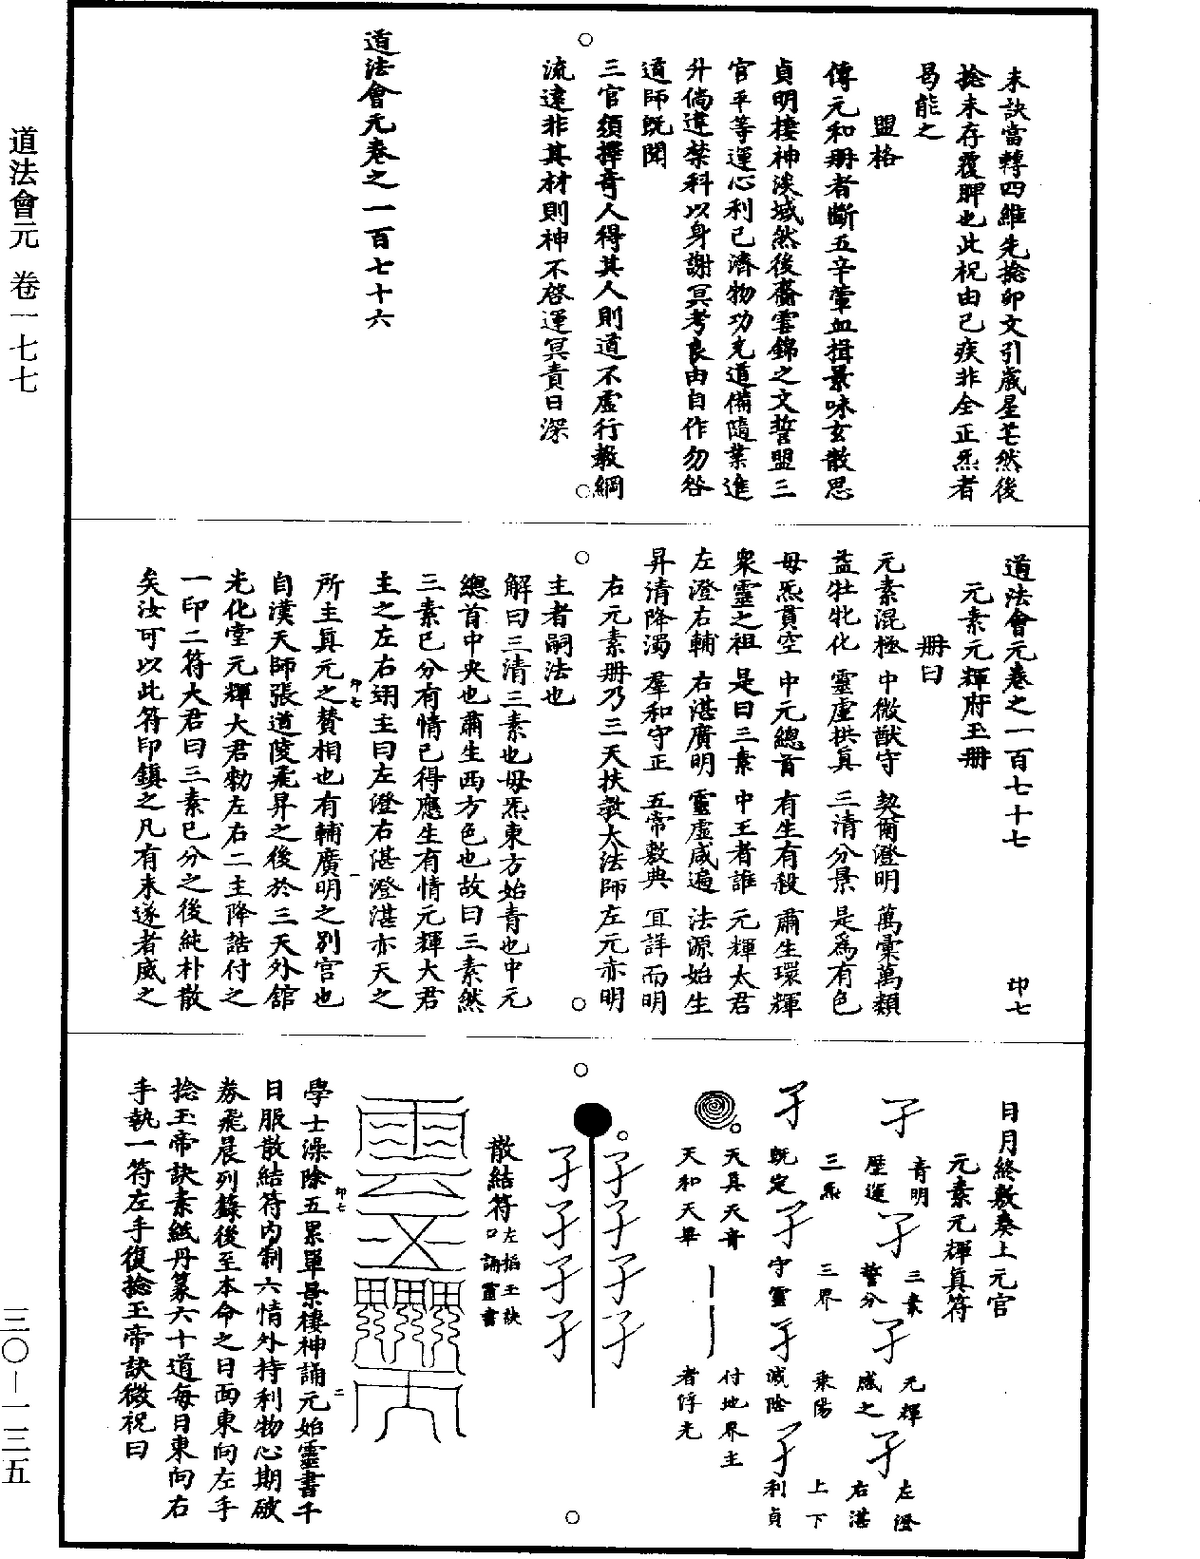 道法會元 卷一七七
三〇—一三五
未訣當轉四維先捻卯文引歲星芒然後
捻未存覆脾也此祝由已疾非全正炁者
曷能之
盟格
傳元和册者斷五辛葷血揖景味玄散思
貞明棲神淡域然後齎雲錦之文誓盟三
官平等運心利已濟物功充道備隨業進
升倘違禁科以身謝冥考良由自作勿咎
道師旣聞
三官須擇竒人得其人則道不虛行教綱
流違非其材則神不啓運冥責日深
道法會元卷之一百七十六
道法會元卷之一百七十七 印七
元素元輝府玉册
册曰
元素混極 中微猷守 契爾澄明 萬彙萬類
益牡牝化 靈虛拱眞 三清分景 是爲有色
母炁貫空 中元總首 有生有殺 肅生環輝
衆靈之祖 是曰三素 中王者誰 元輝太君
左澄右輔 右湛廣明 靈虛咸遍 法源始生
昇清降濁 羣和守正 五常敷典 宜詳而明
右元素册乃三天扶教大法師左元亦明
主者嗣法也
解曰三清三素也母炁東方始青也中元
總首中央也肅生西方色也故曰三素然
三素已分有情已得應生有情元輝大君
主之左右翊主曰左澄右湛澄湛亦天之
印七 一
所主眞元之賛相也有輔廣明之別官也
自漢天師張道陵飛昇之後於三天外舘
光化堂元輝大君勑左右二主降誥付之
一印二符大君曰三素已分之後純朴散
矣汝可以此符印鎮之凡有未遂者威之
日月終敷奏上元官
元素元輝眞符
青明 三素 元輝 左澄
歷運 誓分 感之 右湛
三炁 三界 乗陽 上下
旣定 守靈 滅陰 利貞
天真天音 付地界主
天和天畢 者俘光
散結符 左掐玉訣 口誦靈書
印七 二
學士澡除五累單景棲神誦元始靈書千
日服散結符内制六情外持利物心期破
券飛晨列籙後至本命之日面東向左手
捻玉帝訣素紙丹篆六十道每日東向右
手執一符左手復捻玉帝訣微祝曰